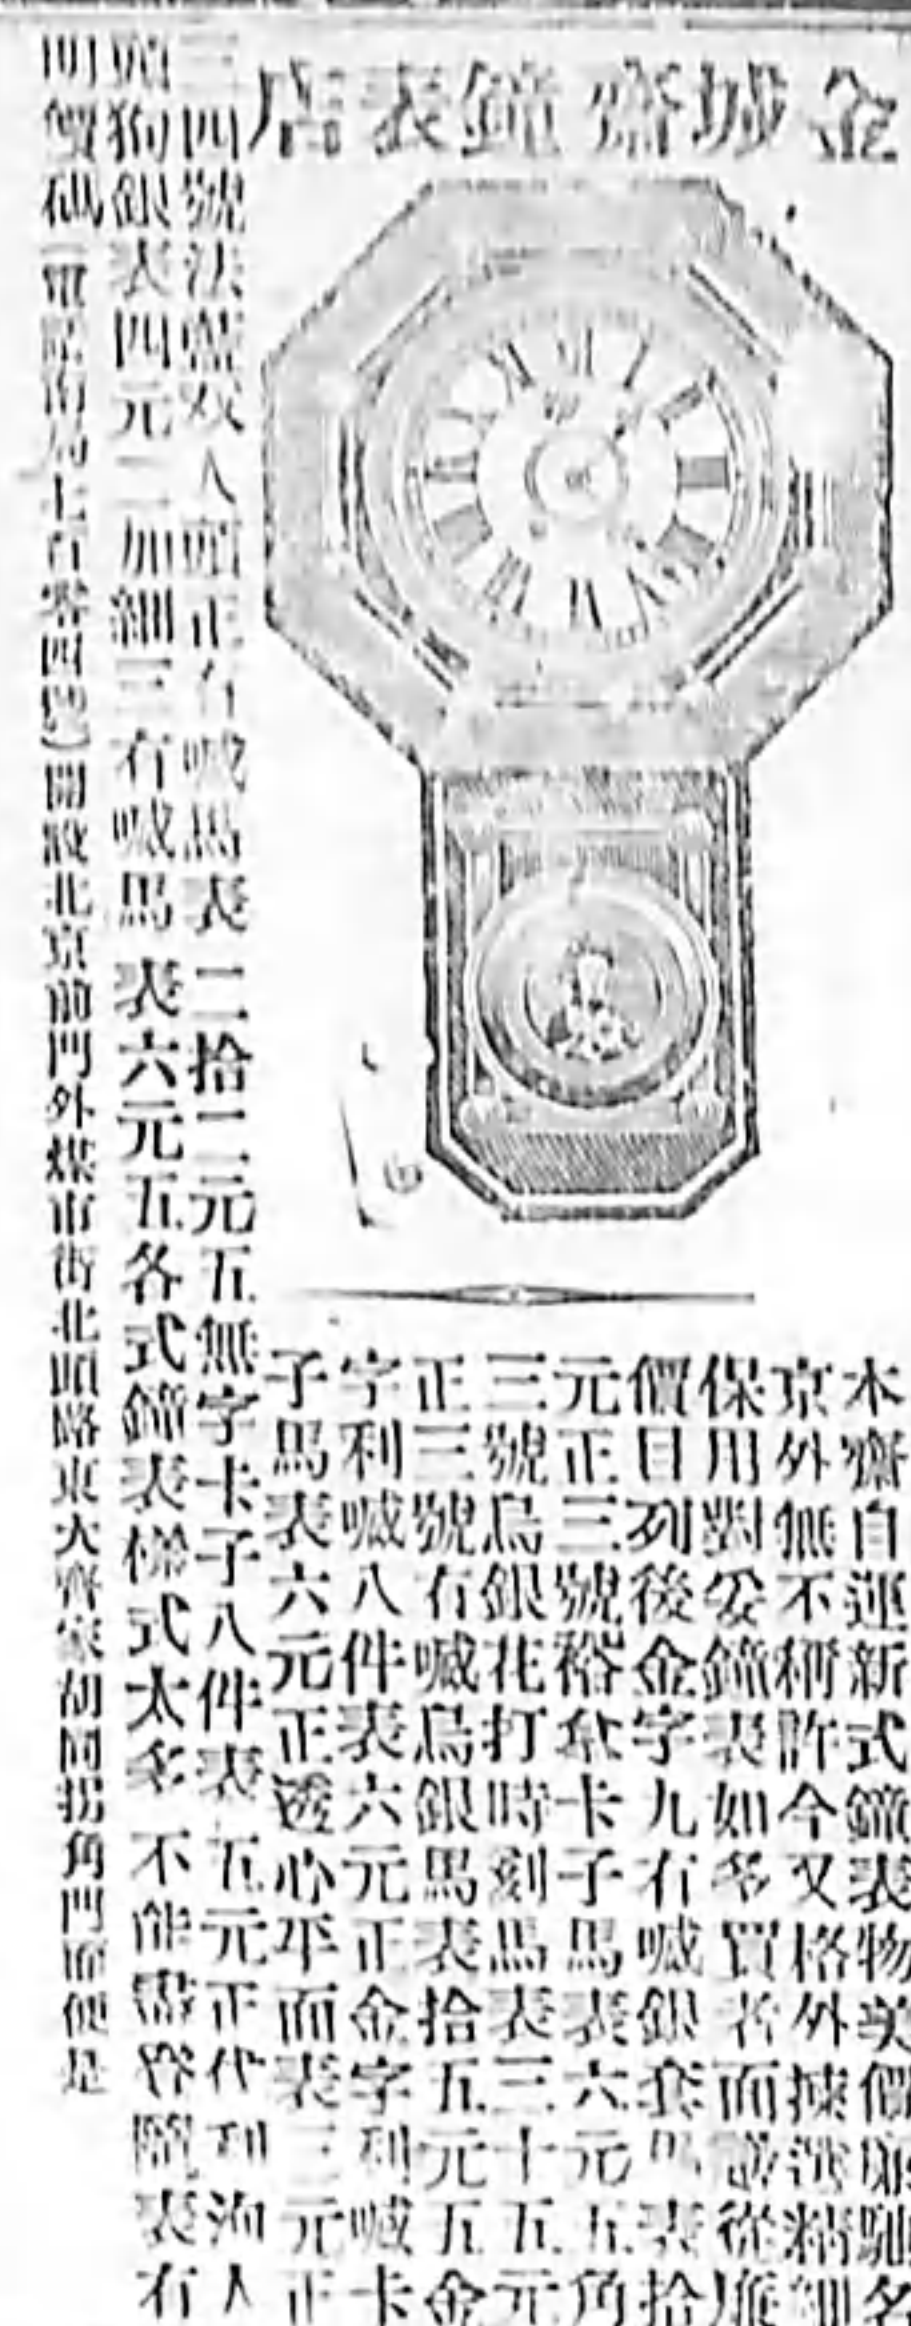 金城齋鐘表店
本齋自運新式鐘表物美價廉馳名
京外無不稱許今又格外揀選精細
保用對妥鐘表如多買者面議從廉
價目列後金字九有喊銀套馬表拾
元正三號裕奩卡子馬表六元五角
三號烏銀花打時刻馬表三十五元
正三號有喊烏銀馬表拾五元五金
字利喊八件表六元正金字利喊卡
子馬表六元正透心平面表三元正
三四號法藍双人頭正有喊馬表二拾二元五無字卡子八件表五元正代利洵人
頭狗銀表四元二加細三有喊馬表六元五各式鐘表樣式太多不能盡登隨表有
明雙碼（電話南局七百零四號）開設北京前門外煤市街北頭路東大齊家胡同拐角門面便是